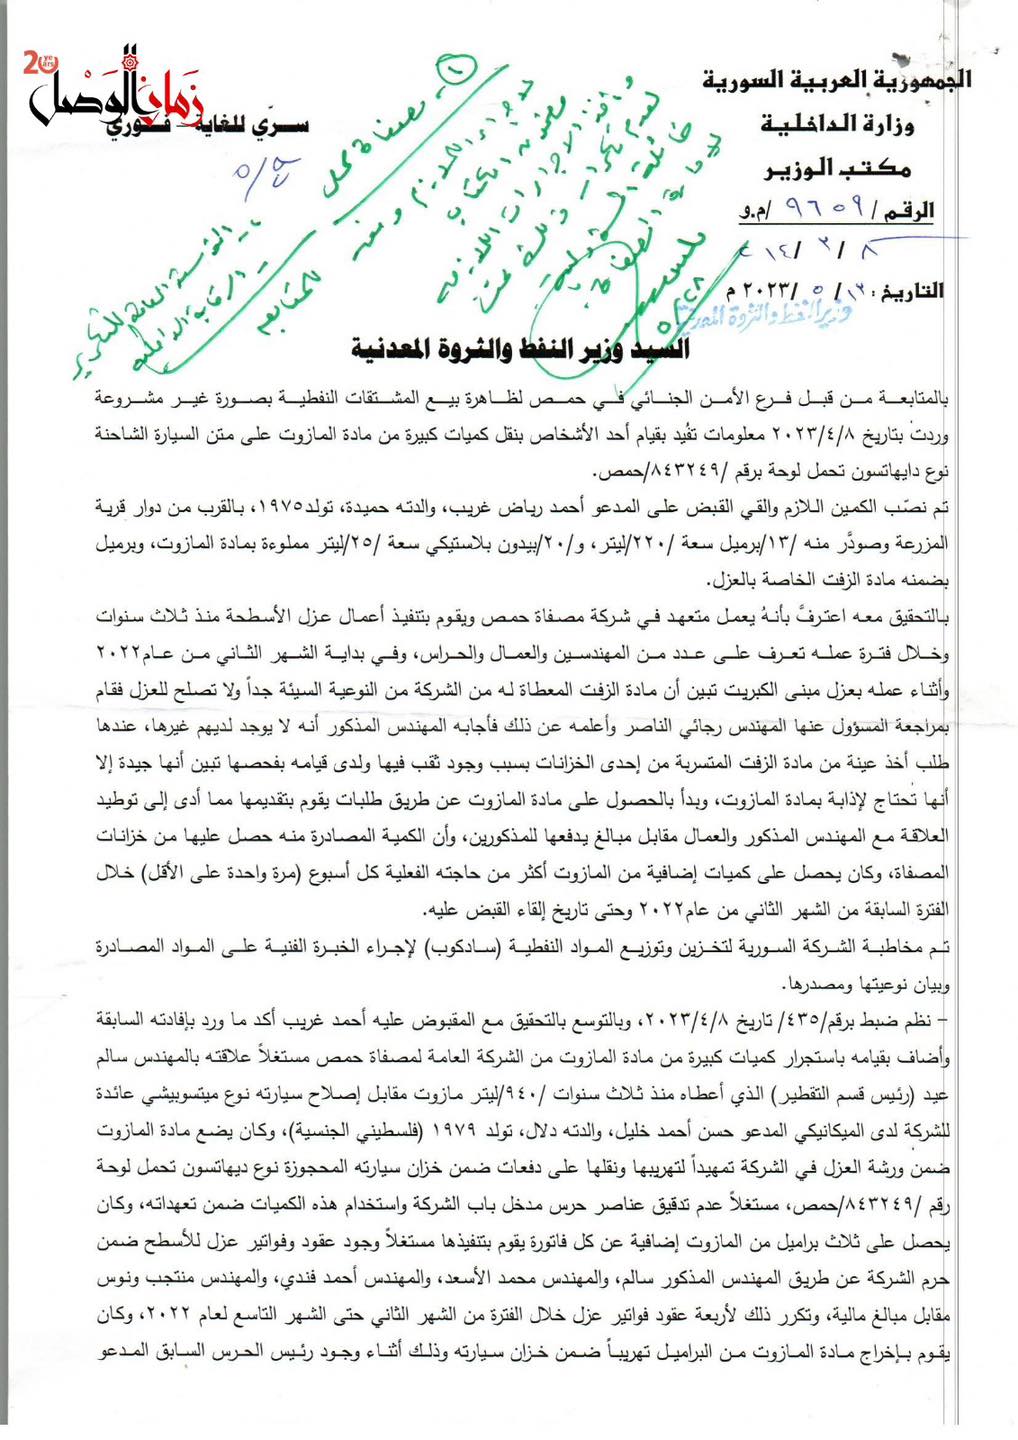 20 years
زمان الوصل
الجمهورية العربية السورية
وزارة الداخلية
سرّي للغاية - فوري
مكتب الوزير
الرقم / ٩٦٥٩ /م.و
التاريخ: ١٢ / ٥ /٢٠٢٣ م
وزير النفط والثروة المعدنية
السيد وزير النفط والثروة المعدنية
بالمتابعة من قبل فرع الأمن الجنائي في حمص لظاهرة بيع المشتقات النفطية بصورة غير مشروعة
وردت بتاريخ ٢٠٢٣/٤/٨ معلومات تفُيد بقيام أحد الأشخاص بنقل كميات كبيرة من مادة المازوت على متن السيارة الشاحنة
نوع دايهاتسون تحمل لوحة برقم /٨٤٣٢٤٩/حمص.
تم نصّب الكمين اللازم والقي القبض على المدعو أحمد رياض غريب، والدته حميدة، تولد١٩٧٥، بالقرب من دوار قرية
المزرعة وصودَّر منه /١٣/برميل سعة /٢٢٠/ليتر، و/٢٠/بيدون بلاستيكي سعة /٢٥/ليتر مملوءة بمادة المازوت، وبرميل
بضمنه مادة الزفت الخاصة بالعزل.
بالتحقيق معه اعترفَّ بأنهُ يعمل متعهد في شركة مصفاة حمص ويقوم بتنفيذ أعمال عزل الأسطحة منذ ثلاث سنوات
وخلال فترة عمله تعرف على عدد من المهندسين والعمال والحراس، وفي بداية الشهر الثاني من عام٢٠٢٢
وأثناء عمله بعزل مبنى الكبريت تبين أن مادة الزفت المعطاة له من الشركة من النوعية السيئة جداً ولا تصلح للعزل فقام
بمراجعة المسؤول عنها المهندس رجائي الناصر وأعلمه عن ذلك فأجابه المهندس المذكور أنه لا يوجد لديهم غيرها، عندها
طلب أخذ عينة من مادة الزفت المتسربة من إحدى الخزانات بسبب وجود ثقب فيها ولدى قيامه بفحصها تبين أنها جيدة إلا
أنها تحتاج لإذابة بمادة المازوت، وبدأ بالحصول على مادة المازوت عن طريق طلبات يقوم بتقديمها مما أدى إلى توطيد
العلاقة مع المهندس المذكور والعمال مقابل مبالغ يدفعها للمذكورين، وأن الكمية المصادرة منه حصل عليها من خزانات
المصفاة، وكان يحصل على كميات إضافية من المازوت أكثر من حاجته الفعلية كل أسبوع (مرة واحدة على الأقل) خلال
الفترة السابقة من الشهر الثاني من عام٢٠٢٢ وحتى تاريخ إلقاء القبض عليه.
تم مخاطبة الشركة السورية لتخزين وتوزيع المواد النفطية (سادكوب) لإجراء الخبرة الفنية على المواد المصادرة
وبيان نوعيتها ومصدرها.
- نظم ضبط برقم/٤٣٥/ تاريخ ٢٠٢٣/٤/٨، وبالتوسع بالتحقيق مع المقبوض عليه أحمد غريب أكد ما ورد بإفادته السابقة
وأضاف بقيامه باستجرار كميات كبيرة من مادة المازوت من الشركة العامة لمصفاة حمص مستغلاً علاقته بالمهندس سالم
عيد (رئيس قسم التقطير) الذي أعطاه منذ ثلاث سنوات /٩٤٠/ليتر مازوت مقابل إصلاح سيارته نوع ميتسوبيشي عائدة
للشركة لدى الميكانيكي المدعو حسن أحمد خليل، والدته دلال، تولد ١٩٧٩ (فلسطيني الجنسية)، وكان يضع مادة المازوت
ضمن ورشة العزل في الشركة تمهيداً لتهريبها ونقلها على دفعات ضمن خزان سيارته المحجوزة نوع ديهاتسون تحمل لوحة
رقم /٨٤٣٢٤٩/حمص، مستغلاً عدم تدقيق عناصر حرس مدخل باب الشركة واستخدام هذه الكميات ضمن تعهداته، وكان
يحصل على ثلاث براميل من المازوت إضافية عن كل فاتورة يقوم بتنفيذها مستغلاً وجود عقود وفواتير عزل للأسطح ضمن
حرم الشركة عن طريق المهندس المذكور سالم، والمهندس محمد الأسعد، والمهندس أحمد فندي، والمهندس منتجب ونوس
مقابل مبالغ مالية، وتكرر ذلك لأربعة عقود فواتير عزل خلال الفترة من الشهر الثاني حتى الشهر التاسع لعام ٢٠٢٢، وكان
يقوم بإخراج مادة المازوت من البراميل تهريباً ضمن خزان سيارته وذلك أثناء وجود رئيس الحرس السابق المدعو